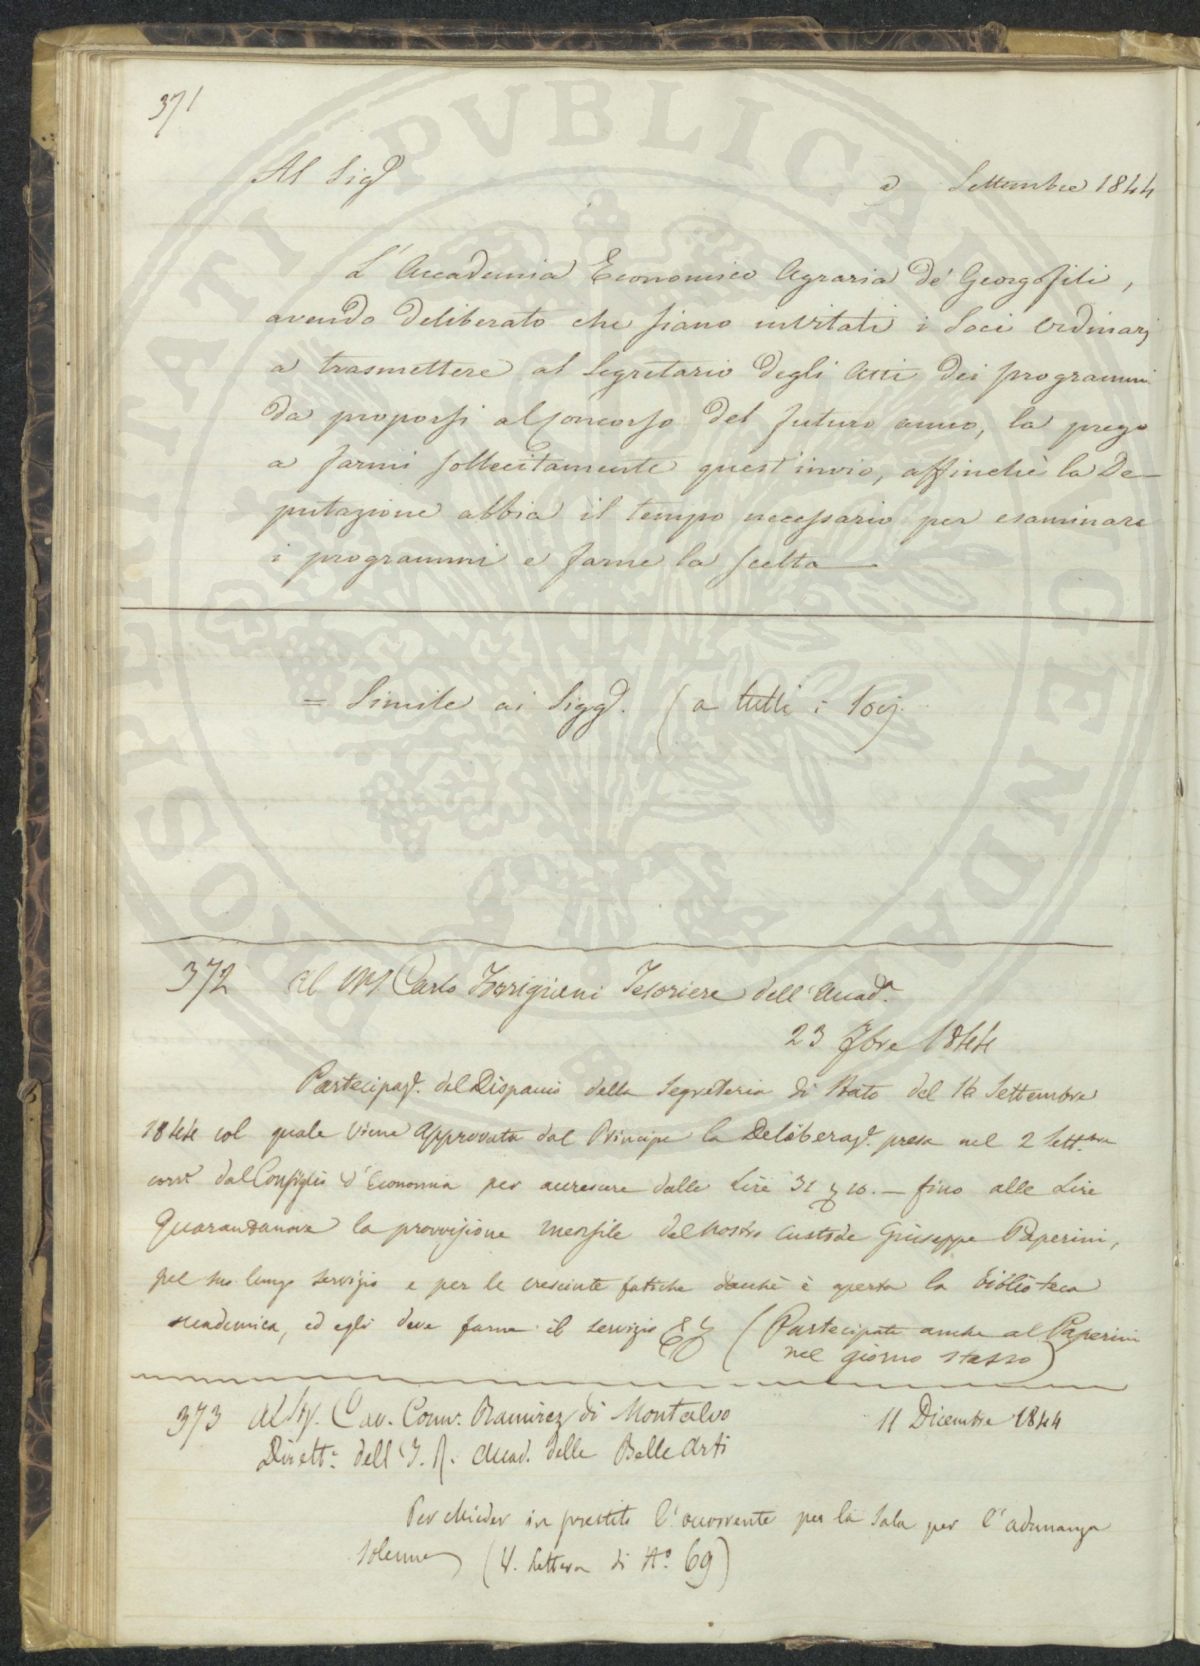 371
Al Sigr
a Settembre 1844
L'Accademia Economico Agraria de' Georgofili,
avendo deliberato che siano invitati i Soci ordinarj
a trasmettere al Segretario degli Atti dei programmi
da proporsi al Concorso del futuro anno, la prego
a farmi sollecitamente quest'invio, affinchè la De-
putazione abbia il tempo necessario per esaminare
i programmi e farne la scelta
= Simile ai Sigg.ri (a tutti i Socj.
372 Al Carlo Tesoriere dell'Accad.a
23 7bre 1844
Partecipaz.e del Dispaccio della Segreteria di Stato del 16 Settembre
1844 col quale viene approvata dal Principe la Deliberaz.e presa nel 2 Sett.bre
corr.e dal Consiglio d'Economia per accrescere dalle Lire 31 10. — fino alle Lire
Quarantanove la provvisione mensile del nostro Custode Giuseppe Paperini,
pel suo lungo servizio e per le cresciute fatiche dacchè è aperta la Biblioteca
accademica, ed egli deve farne il servizio (Partecipata anche al Paperini
nel giorno stesso)
373 Al Sig. Cav. Comm. Ramirez di Montalvo 11 Dicembre 1844
Dirett.e dell'I. R. Accad. delle Belle Arti
Per chieder in prestito l'occorrente per la Sala per l'adunanza
solenne (V. Lettera di N.o 69)
PROSPERITATI PVBLICAE AVGENDAE